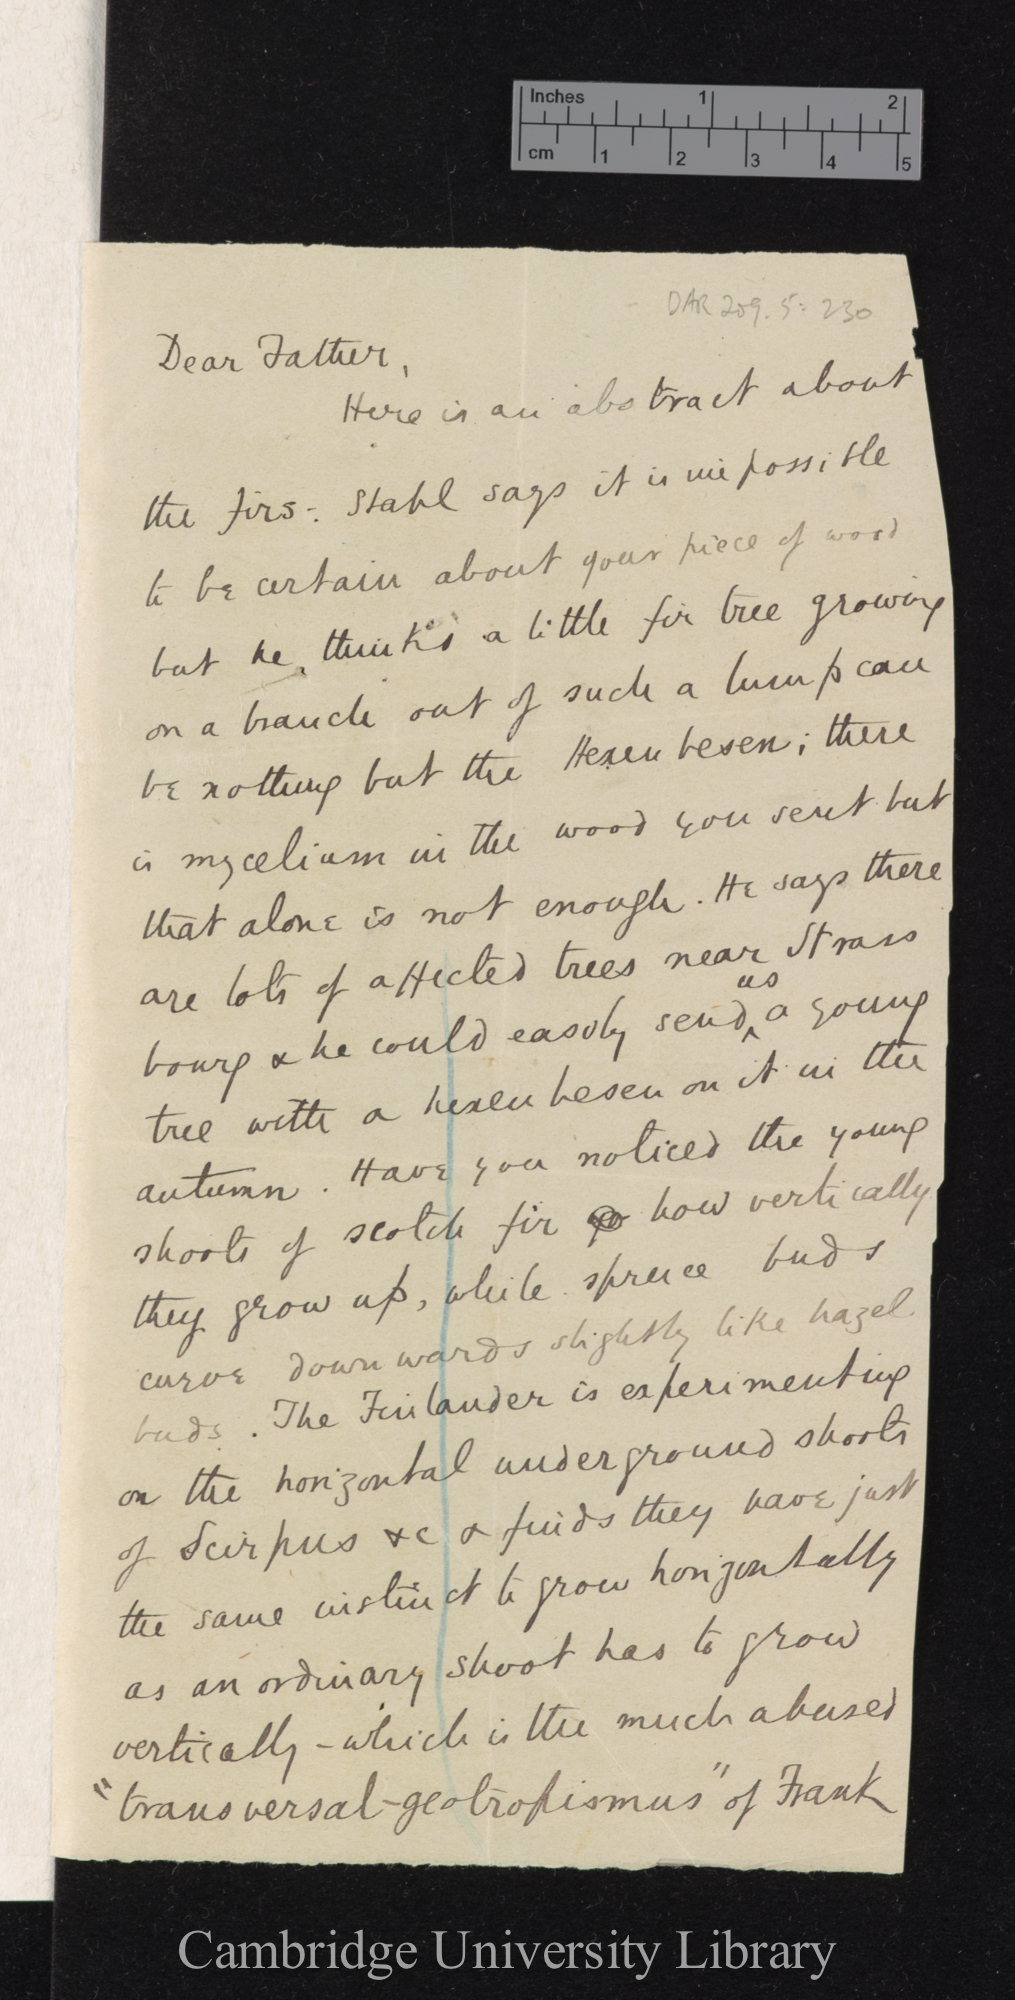 Inches 1 2
cm 1 2 3 4 5
DAR 209. 5: 230
Dear Father,
Here is an abstract about
the firs-. Stahl says it is impossible
to be certain about your piece of wood
but he thinks a little fir tree growing
on a branch out of such a lump can
be nothing but the Hexenbesen; there
is mycelium in the wood you sent but
that alone is not enough. He says there
are lots of affected trees near Strass
bourg & he could easily send us a young
tree with a hexenbesen on it in the
autumn. Have you noticed the young
shoots of scotch fir how vertically
they grow up, while spruce buds
curve downwards slightly like hazel
buds. The Finlander is experimenting
on the horizontal underground shoots
of Scirpus &c & finds they have just
the same instinct to grow horizontally
as an ordinary shoot has to grow
vertically – which is the much abused
"transversal-geotropismus" of Frank
Cambridge University Library